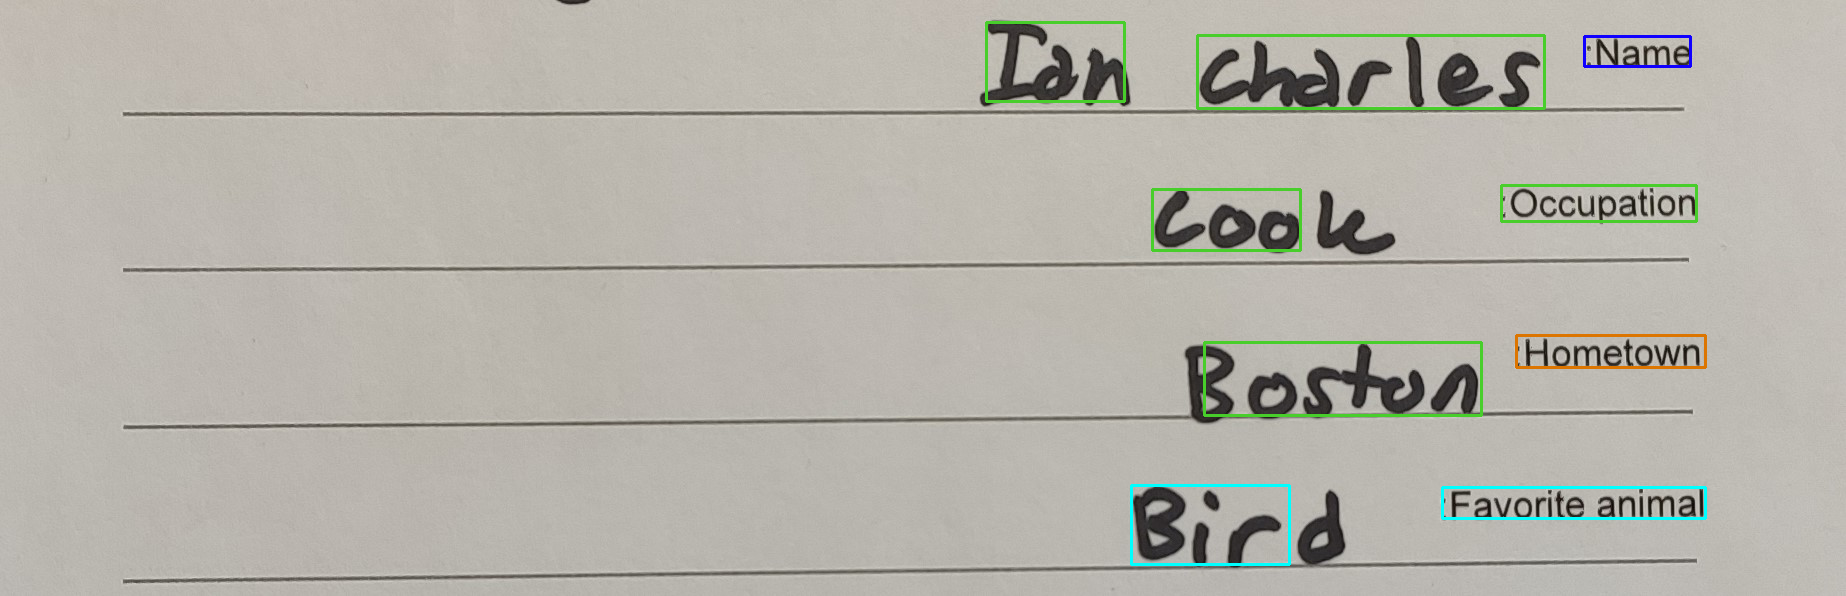 Ian Charles :Name
Cook :Occupation
Boston :Hometown
Bird :Favorite animal